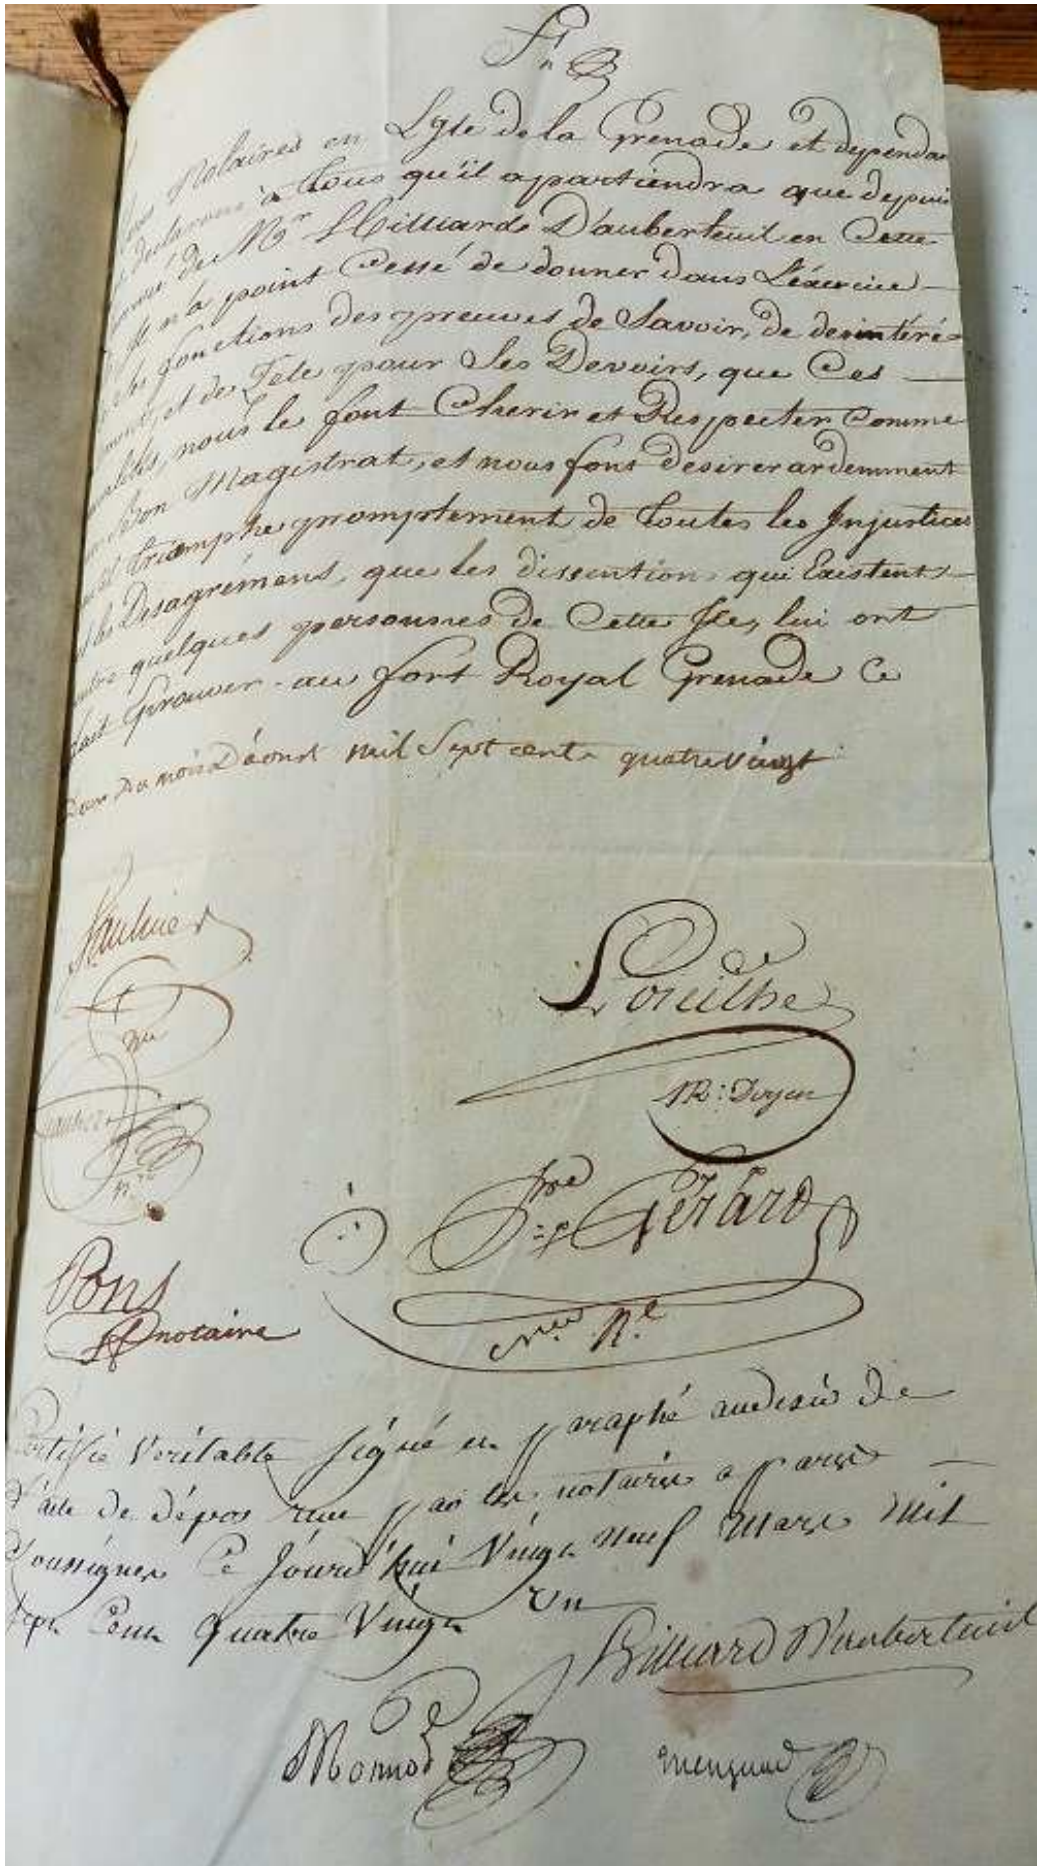 Notaires en L'gle de la Grenade et dependan
declarons à tous qu'il apartiendra que depuis
de Mr Hilliard D'auberteuil en Cette
Il n'a point Cessé de donner dans L'éxercice
fonctions des preuves de Savoir, de desintéré-
ment, et de Zele pour Ses Devoirs, que Ces
nous le font Cherir et Respecter Comme
bon Magistrat, et nous font desirer ardemment
triomphe promptement de toutes les Injustices
et les Desagrémens, que les dissentions qui Existent
entre quelques personnes de Cette Isle, lui ont
fait Eprouver. au fort Royal Grenade Ce
du mois D'éoust mil Sept cent quatre vingt
Saulnier
Loreilhe
N: Doyen
Gérard
Nre Rl
Pons
notaire
Certifié Veritable signé et paraphé audesir de
L'acte de dépos par les notaires a paris
Soussignés Ce jourd'hui Vingt neuf mars mil
Sept Cent Quatre Vingt Un
Hilliard D'auberteuil
Monnot